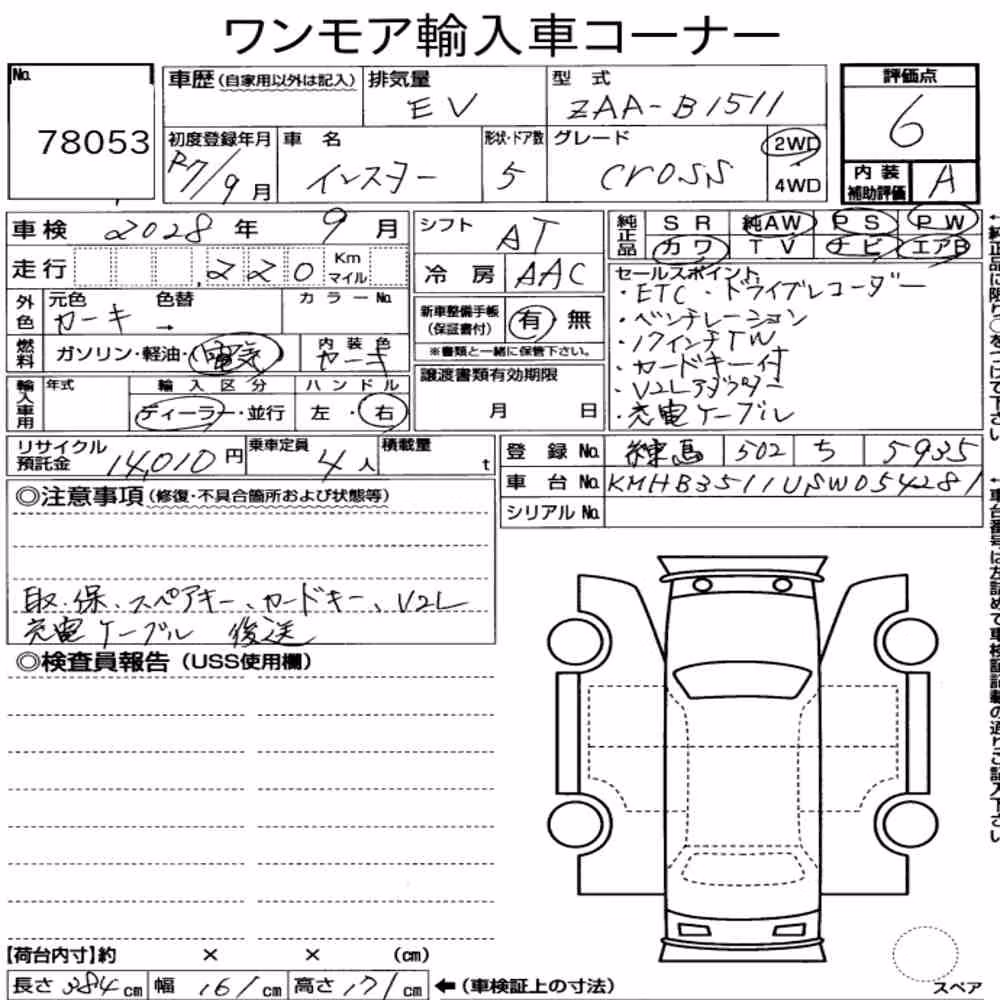 ワンモア輸入車コーナー
No. 78053
車歴 (自家用以外は記入) 排気量 EV 型式 ZAA-B1511
評価点 6
初度登録年月 R7/9月 車名 インスター 形状・ドア数 5 グレード cross 2WD 4WD
内装補助評価 A
車検 2028年 9月
シフト AT
純正品 SR 純AW PS PW
カワ TV ナビ エアB
走行 220 Km マイル
冷房 AAC
外色 元色 カーキ 色替 → カラーNo.
新車整備手帳 (保証書付) 有 無
※書類と一緒に保管下さい。
燃料 ガソリン・軽油・電気 内装色 カーキ
譲渡書類有効期限 月 日
輸入車用 年式 輸入区分 ディーラー・並行 ハンドル 左・右
セールスポイント
・ETC・ドライブレコーダー
・ベンチレーション
・17インチTW
・カードキー付
・V2Lアダプター
・充電ケーブル
リサイクル預託金 14,010円 乗車定員 4人 積載量 t
登録No. 練馬 502 ち 5935
車台No. KMHB3511USW054281
シリアルNo.
◎注意事項 (修復・不具合箇所および状態等)
取・保、スペアキー、カードキー、V2L
充電ケーブル 後送
◎検査員報告 (USS使用欄)
【荷台内寸】約 × × (cm)
長さ 384cm 幅 161cm 高さ 171cm ←(車検証上の寸法)
スペア
←純正品に限り○をつけて下さい
←車台番号は左詰めで車検証記載の通りご記入下さい